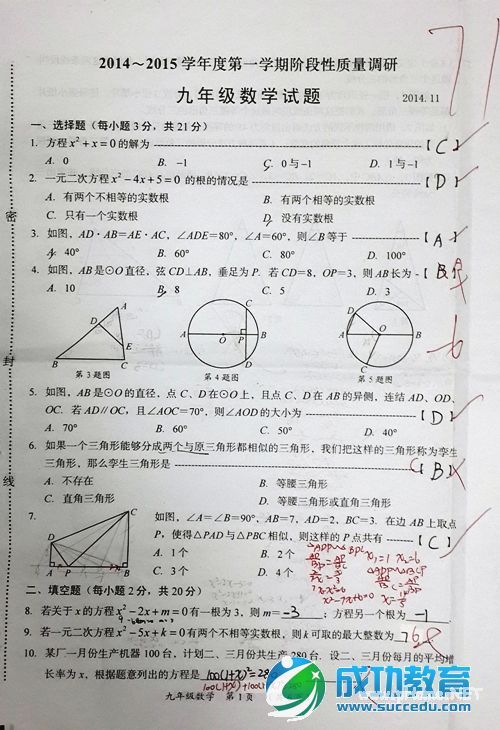 2014～2015学年度第一学期阶段性质量调研
九年级数学试题
2014.11
71
一、选择题（每小题3分，共21分）
1. 方程x²+x=0的解为【C】
A. 0 B. -1 C. 0与-1 D. 1与-1
2. 一元二次方程x²-4x+5=0的根的情况是【D】
A. 有两个不相等的实数根 B. 有两个相等的实数根
C. 只有一个实数根 D. 没有实数根
3. 如图，AD·AB=AE·AC，∠ADE=80°，∠A=60°，则∠B等于【A】
A. 40° B. 60° C. 80° D. 100°
4. 如图，AB是⊙O直径，弦CD⊥AB，垂足为P. 若CD=8，OP=3，则AB长为
A. 10 B. 8 C. 5 D. 3
-6
A D E B C
第3题图
A O P B C D
第4题图
D A O B C
第5题图
5. 如图，AB是⊙O的直径，点C、D在⊙O上，且点C、D在AB的异侧，连结AD、OD、
OC. 若AD∥OC，且∠AOC=70°，则∠AOD的大小为【D】
A. 70° B. 60° C. 50° D. 40°
6. 如果一个三角形能够分成两个与原三角形都相似的三角形，我们把这样的三角形称为孪生
三角形，那么孪生三角形是【B】
A. 不存在 B. 等腰三角形
C. 直角三角形 D. 等腰三角形或直角三角形
7. 如图，∠A=∠B=90°，AB=7，AD=2，BC=3. 在边AB上取点
P，使得△PAD与△PBC相似，则这样的P点共有【C】
A. 1个 B. 2个
C. 3个 D. 4个
D C A P B
二、填空题（每小题2分，共20分）
8. 若关于x的方程x²-2x+m=0有一根为3，则m= -3 ；方程另一个根为 -1
9. 若一元二次方程x²-5x+k=0有两个不相等实数根，则k可取的最大整数为
10. 某厂一月份生产机器100台，计划二、三月份共生产280台. 设二、三月份每月的平均增
长率为x，根据题意列出的方程是 100(1+x)²=280
九年级数学 第1页
密
封
线
成功教育
www.succedu.com